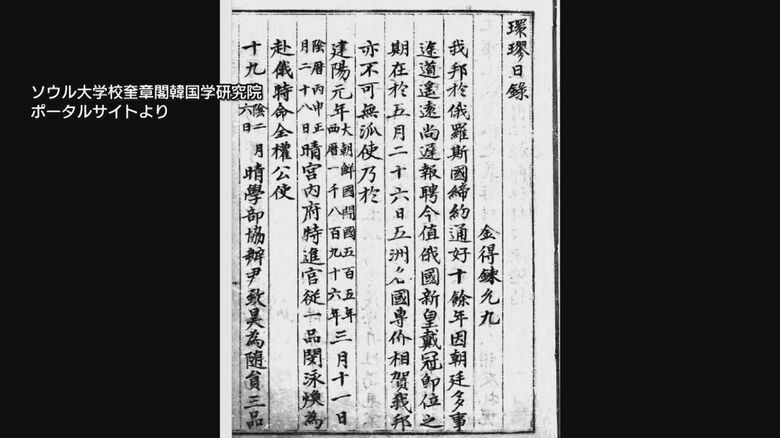 ソウル大学校奎章閣韓国学研究院
ポータルサイトより
環璆日錄
金得鍊允九
我邦於俄羅斯國締約通好十餘年因朝廷多事
途道遙遠尚遲報聘今值俄國新皇戴冠卽位之
期在於五月二十六日五洲名國專价相賀我邦
亦不可無派使乃於
建陽元年大朝鮮國開國五百五年西曆一千八百九十六年三月十一日
陰曆丙申正月二十八日晴宮內府特進官從一品閔泳煥為
赴俄特命全權公使
十九日陰二月六日晴學部協辦尹致昊為隨員三品